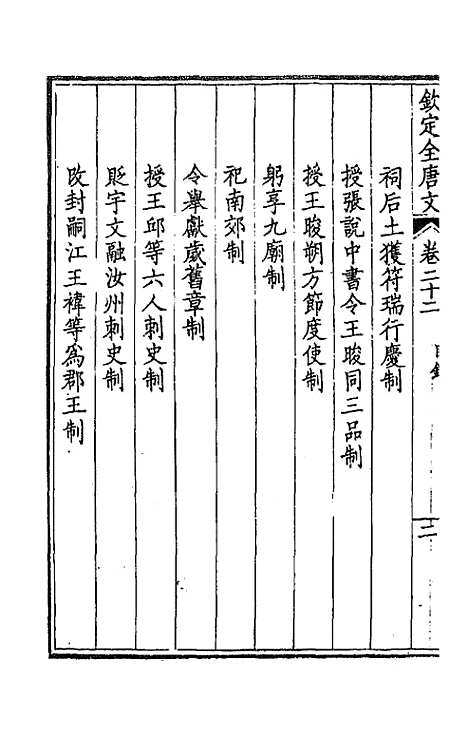 欽定全唐文 卷二十二 目錄 二
祠后土獲符瑞行慶制
授張說中書令王晙同三品制
授王晙朔方節度使制
躬享九廟制
祀南郊制
令舉獻歲舊章制
授王邱等六人刺史制
貶宇文融汝州刺史制
改封嗣江王禕等爲郡王制